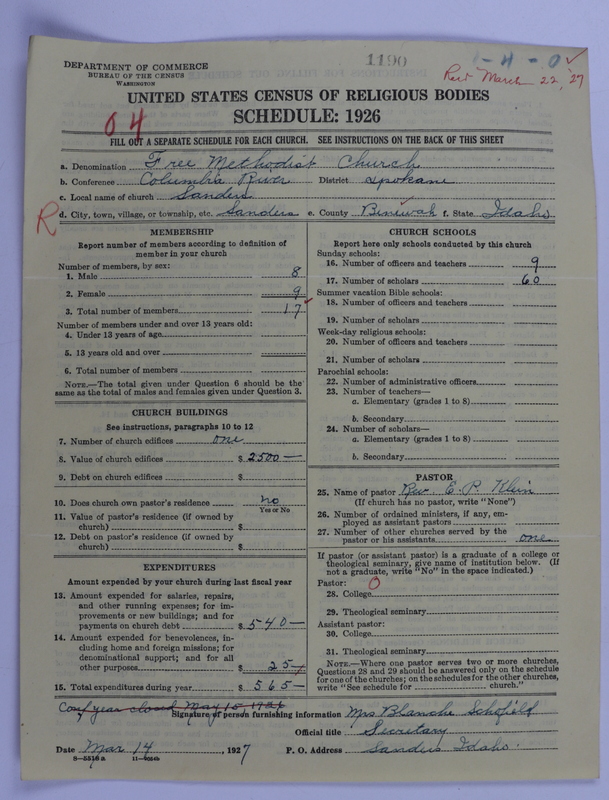 1190
1-4-0
DEPARTMENT OF COMMERCE
BUREAU OF THE CENSUS
WASHINGTON
Rec'd March 22, '27
UNITED STATES CENSUS OF RELIGIOUS BODIES
SCHEDULE: 1926
04
FILL OUT A SEPARATE SCHEDULE FOR EACH CHURCH. SEE INSTRUCTIONS ON THE BACK OF THIS SHEET
a. Denomination Free Methodist Church
b. Conference Columbia River District Spokane
c. Local name of church Sanders
R d. City, town, village, or township, etc. Sanders e. County Benewah f. State Idaho
MEMBERSHIP
Report number of members according to definition of
member in your church
Number of members, by sex:
1. Male 8
2. Female 9
3. Total number of members 17
Number of members under and over 13 years old:
4. Under 13 years of age
5. 13 years old and over
6. Total number of members
NOTE.—The total given under Question 6 should be the
same as the total of males and females given under Question 3.
CHURCH BUILDINGS
See instructions, paragraphs 10 to 12
7. Number of church edifices one
8. Value of church edifices $ 2500—
9. Debt on church edifices $
10. Does church own pastor's residence no
Yes or No
11. Value of pastor's residence (if owned by
church) $
12. Debt on pastor's residence (if owned by
church) $
EXPENDITURES
Amount expended by your church during last fiscal year
13. Amount expended for salaries, repairs,
and other running expenses; for im-
provements or new buildings; and for
payments on church debt $ 540—
14. Amount expended for benevolences, in-
cluding home and foreign missions; for
denominational support; and for all
other purposes $ 25—
15. Total expenditures during year $ 565—
CHURCH SCHOOLS
Report here only schools conducted by this church
Sunday schools:
16. Number of officers and teachers 9
17. Number of scholars 60
Summer vacation Bible schools:
18. Number of officers and teachers
19. Number of scholars
Week-day religious schools:
20. Number of officers and teachers
21. Number of scholars
Parochial schools:
22. Number of administrative officers
23. Number of teachers—
a. Elementary (grades 1 to 8)
b. Secondary
24. Number of scholars—
a. Elementary (grades 1 to 8)
b. Secondary
PASTOR
25. Name of pastor Rev. E. P. Klein
(If church has no pastor, write "None")
26. Number of ordained ministers, if any, em-
ployed as assistant pastors
27. Number of other churches served by the
pastor or his assistants one
If pastor (or assistant pastor) is a graduate of a college or
theological seminary, give name of institution below. (If
not a graduate, write "No" in the space indicated.)
Pastor: 0
28. College
29. Theological seminary
Assistant pastor:
30. College
31. Theological seminary
NOTE.—Where one pastor serves two or more churches,
Questions 28 and 29 should be answered only on the schedule
for one of the churches; on the schedules for the other churches,
write "See schedule for church."
Conf year closed May 15, 1926
Signature of person furnishing information Mrs Blanche Schofield
Official title Secretary
Date Mar 14, 1927 P. O. Address Sanders Idaho.
8—5516a